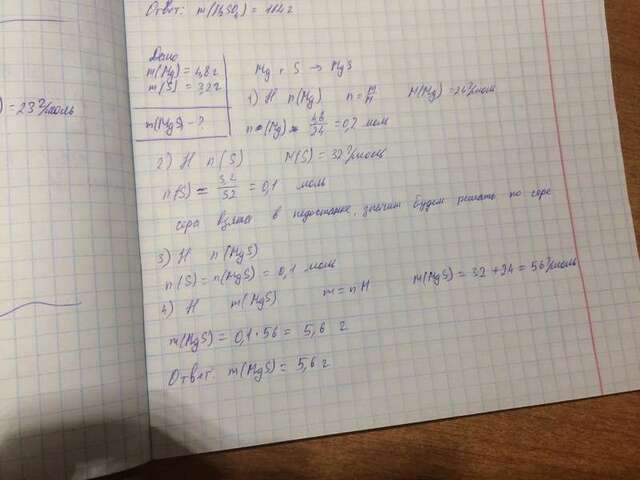 Ответ: m(H₂SO₄) = 114 г
) = 23 г/моль
Дано
m(Mg) = 4,8 г
m(S) = 3,2 г
m(MgS) - ?
Mg + S → MgS
1) H n(Mg) n = m/M M(Mg) = 24 г/моль
n(Mg) = 4,8/24 = 0,2 мол
2) H n(S) M(S) = 32 г/моль
n(S) = 3,2/32 = 0,1 моль
сера взята в недостанке, значит будем решать по сере
3) H n(MgS)
n(S) = n(MgS) = 0,1 моль
4) H m(MgS) m = nM M(MgS) = 32 + 24 = 56 г/моль
m(MgS) = 0,1 · 56 = 5,6 г
Ответ: m(MgS) = 5,6 г